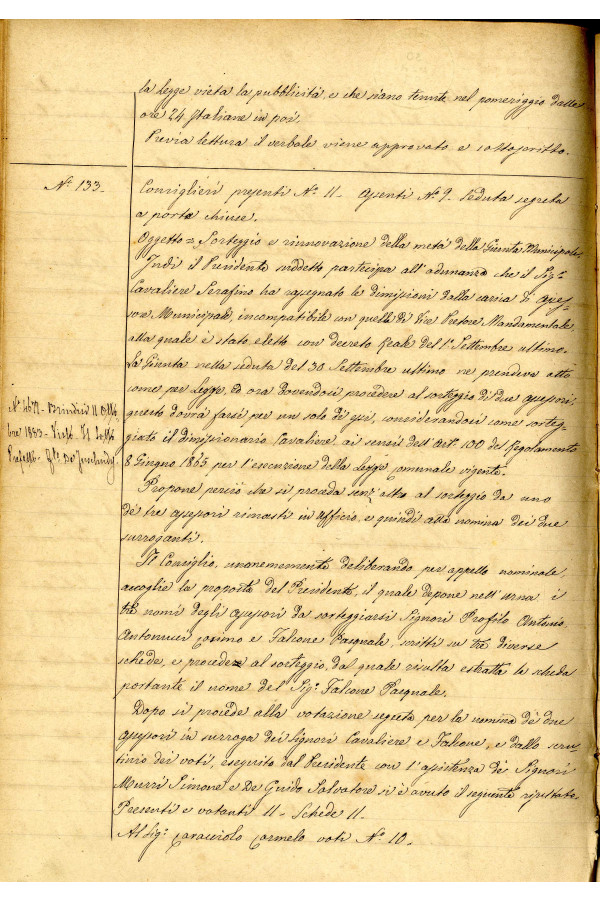 la legge vieta la pubblicità, e che siano tenute nel pomeriggio dalle
ore 24 Italiane in poi.
Previa lettura il verbale viene approvato e sottoscritto.
N.° 133.
Consiglieri presenti N.° 11 - Assenti N.° 9. Seduta segreta
a porte chiuse.
Oggetto = Sorteggio e rinnovazione della metà della Giunta Municipale
Indi il Presidente suddetto partecipa all'adunanza che il Sig.r
Cavaliere Serafino ha rassegnato le dimissioni dalla carica di Asses-
sore Municipale, incompatibile con quella di Vice Pretore Mandamentale
alla quale è stato eletto con decreto Reale del 1.° Settembre ultimo.
La Giunta nella seduta del 30 Settembre ultimo ne prendeva atto
come per Legge, ed ora dovendosi procedere al sorteggio di due assessori,
questo dovrà farsi per un solo di essi, considerandosi come sorteg-
giato il dimissionario Cavaliere ai sensi dell'Art.° 100 del Regolamento
8 Giugno 1865 per l'esecuzione della Legge comunale vigente.
N.° 4679 - Brindisi 11 Otto
bre 1883 - Visto - Il Sotto
Prefetto -
Propone perciò che si proceda senz'altro al sorteggio da uno
dè tre assessori rimasti in Ufficio, e quindi alla nomina dei due
surroganti.
Il Consiglio, unanemente deliberando per appello nominale,
accoglie la proposta del Presidente, il quale depone nell'urna i
tre nomi degli assessori da sorteggiarsi Signori Profilo Antonio,
Antonucci Cosimo e Falcone Pasquale, scritti su tre diverse
schede, e procede al sorteggio, dal quale risulta estratta la scheda
portante il nome del Sig.r Falcone Pasquale.
Dopo si procede alla votazione segreta per la nomina dè due
assessori in surroga dei Signori Cavaliere e Falcone, e dallo scru-
tinio dei voti, eseguito dal Presidente con l'assistenza dè Signori
Murri Simone e De Guido Salvatore si è avuto il seguente risultato
Presenti e votanti 11 - Schede 11.
Al Sig.r Caracciolo Carmelo voti N.° 10.